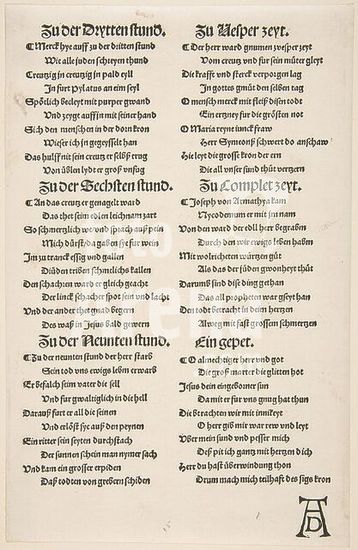 Zu der Drytten stund.
Merck hye auff zu der dritten stund
Wit alle juden schryen thund
Creutzig in creutzig in pald eyl
In furt Pylatus an eim seyl
Spötlich becleyt mit purper gwand
Und zeygt auff jn mit seiner hand
Sich den menschen in der dorn kron
Wieser ich jn gegeysselt han
Das hulff nit sein creutz er selbß trug
Von üblen lydt er groß unfug
Zu der Sechsten stund.
An das creutz er genagelt ward
Das thet seim edlen leichnam zart
So schmertzlich we und sprach auß pein
Mich dürst/ da gaben sye fur wein
Im zu tranck essig und gallen
Die den triben schmechlichs kallen
Den schachern ward er gleich geacht
Der linck schacher spot sein und lacht
Und der ander thet gnad begern
Des waß in Jesus bald gewern
Zu der Neunten stund.
Zu der neunten stund der herr starb
Sein tod uns ewigs leben erwarb
Er befalch seim vater die sell
Und fur gwaltiglich in die hell
Darauß furt er all die seinen
Und erlöst sye auß den peynen
Ein ritter sein seyten durchstach
Der sunnen schein man nymer sach
Und kam ein grosser erpiden
Daß todten von grebern schiden
Zu Vesper zeyt.
Der herr ward gnumen z vesper zeyt
Vom creutz und fur sein müter gleyt
Die krafft und sterck verporgen lag
In gottes gmüt den selben tag
O mensch merck mit fleiß disen todt
Ein ertzney fur die grösten not
O Maria reyne iunckfraw
Herr Symeonß schwert do anschaw
Hie leyt die grosse kron der ern
Die all unser sund thüt wertzern
Zu Complet zeyt.
Joseph von Armathya kam
Nycodemum er mit jm nam
Von den ward der edl herr begraben
Durch den wir ewigs leben haben
Mit wolrichen würtzen güt
Als das der jüden gwonheyt thüt
Darumb sind dise ding gethan
Das all propheten war gseyt han
Den todt betracht in deim hertzen
Alweg mit fast grossen schmertzen
Ein gepet.
O almechtiger herr und got
Die groß marter die gliten hot
Jesus dein eingeborner sun
Da mit er fur uns gnug hat thun
Die betrachten wir mit innikeyt
O herr gib mir war rew und leyt
Uber mein sund und pesser mich
Deß pit ich gantz mit hertzen dich
Herr du hast überwindung thon
Drum mach mich teilhaft des sigs kron
AD